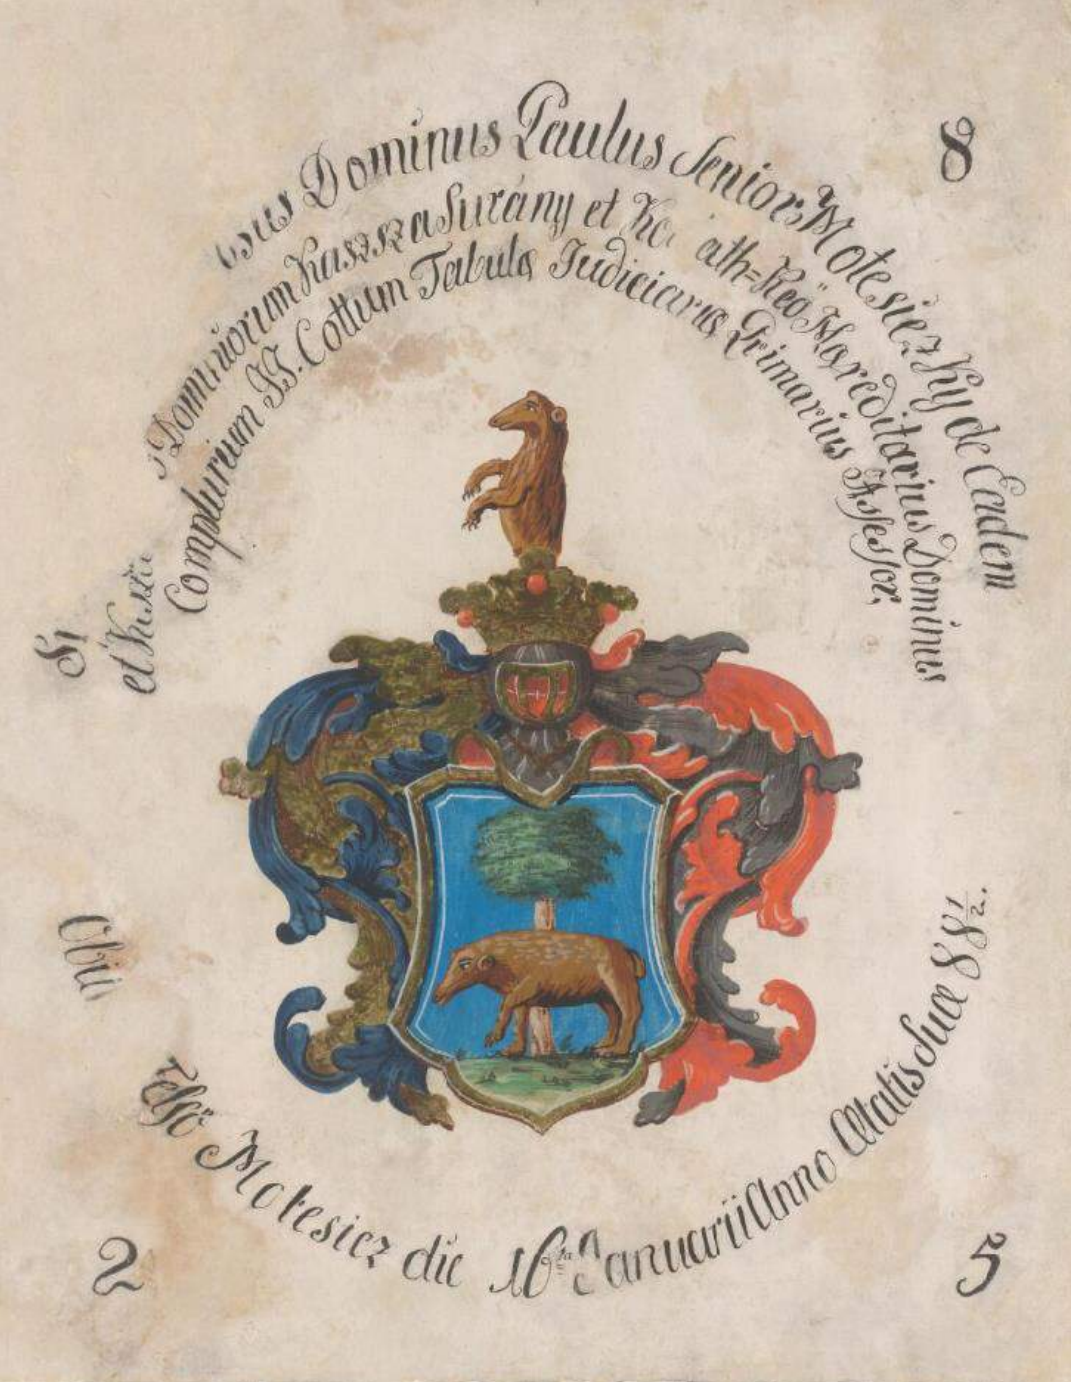 8
Dominus Paulus Senior Motesiczky de Eadem
Dominiorum Kaszza Surány et Reö Hæreditarius Dominus
Complurium JJ. Cottum Tabulæ Judiciariæ Primarius Assessor,
Motesicz die 16ta Januarii Anno Ætatis suæ 88½.
2
5